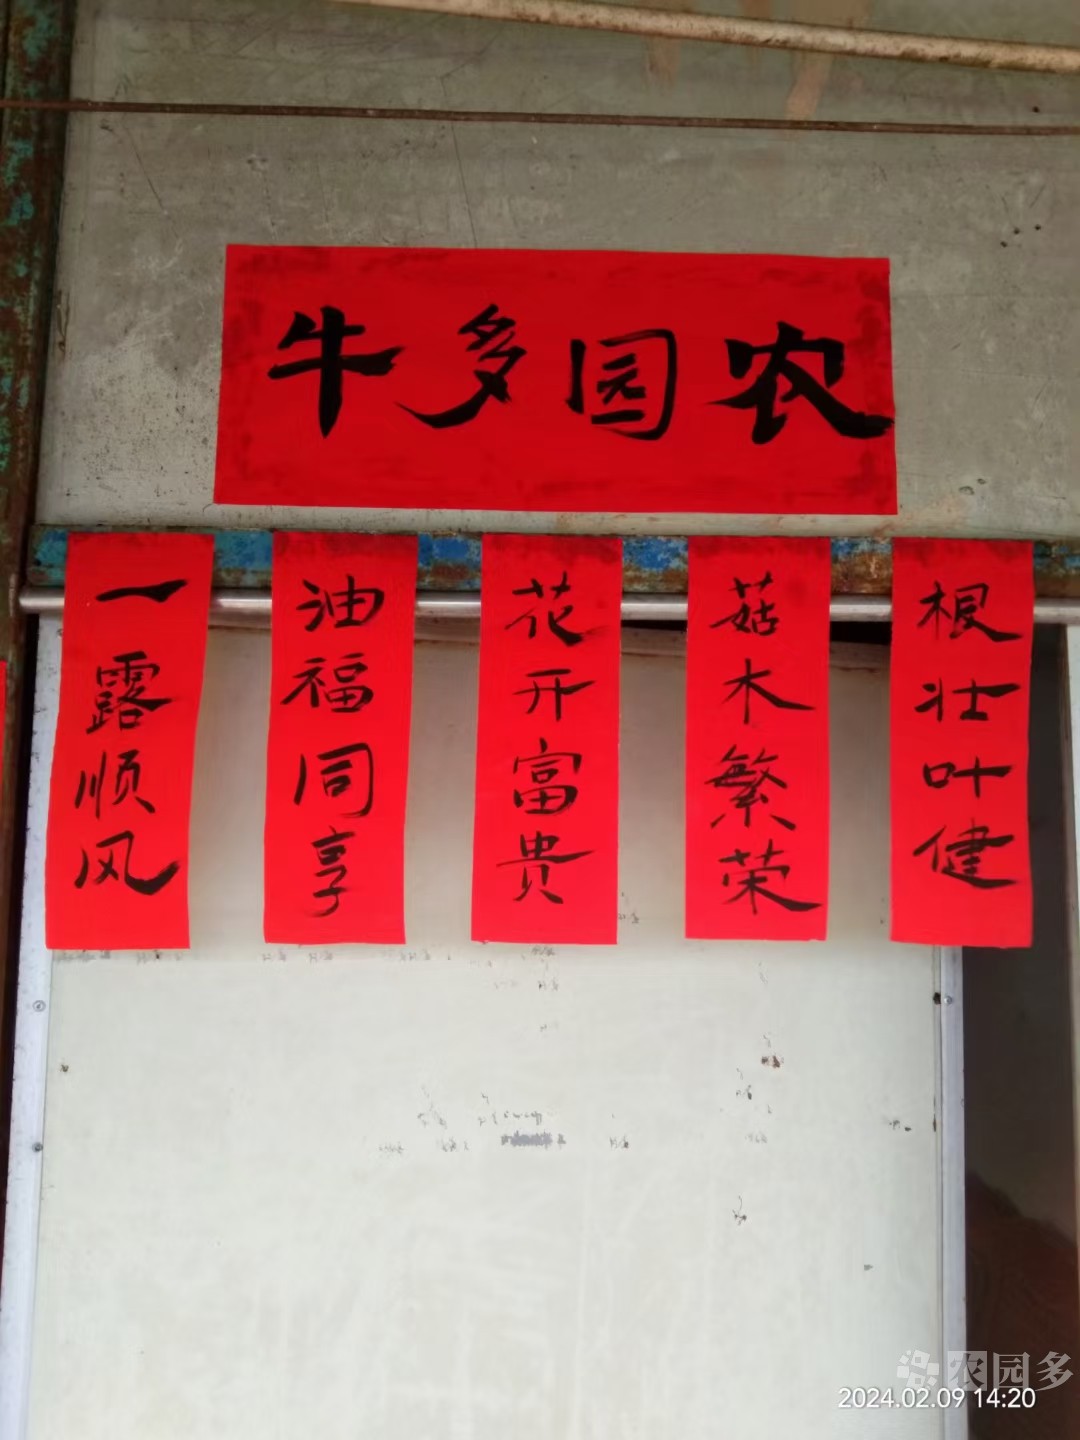 牛多园农
一露顺风
油福同享
花开富贵
菇木繁荣
根壮叶健
农园多
2024.02.09 14:20